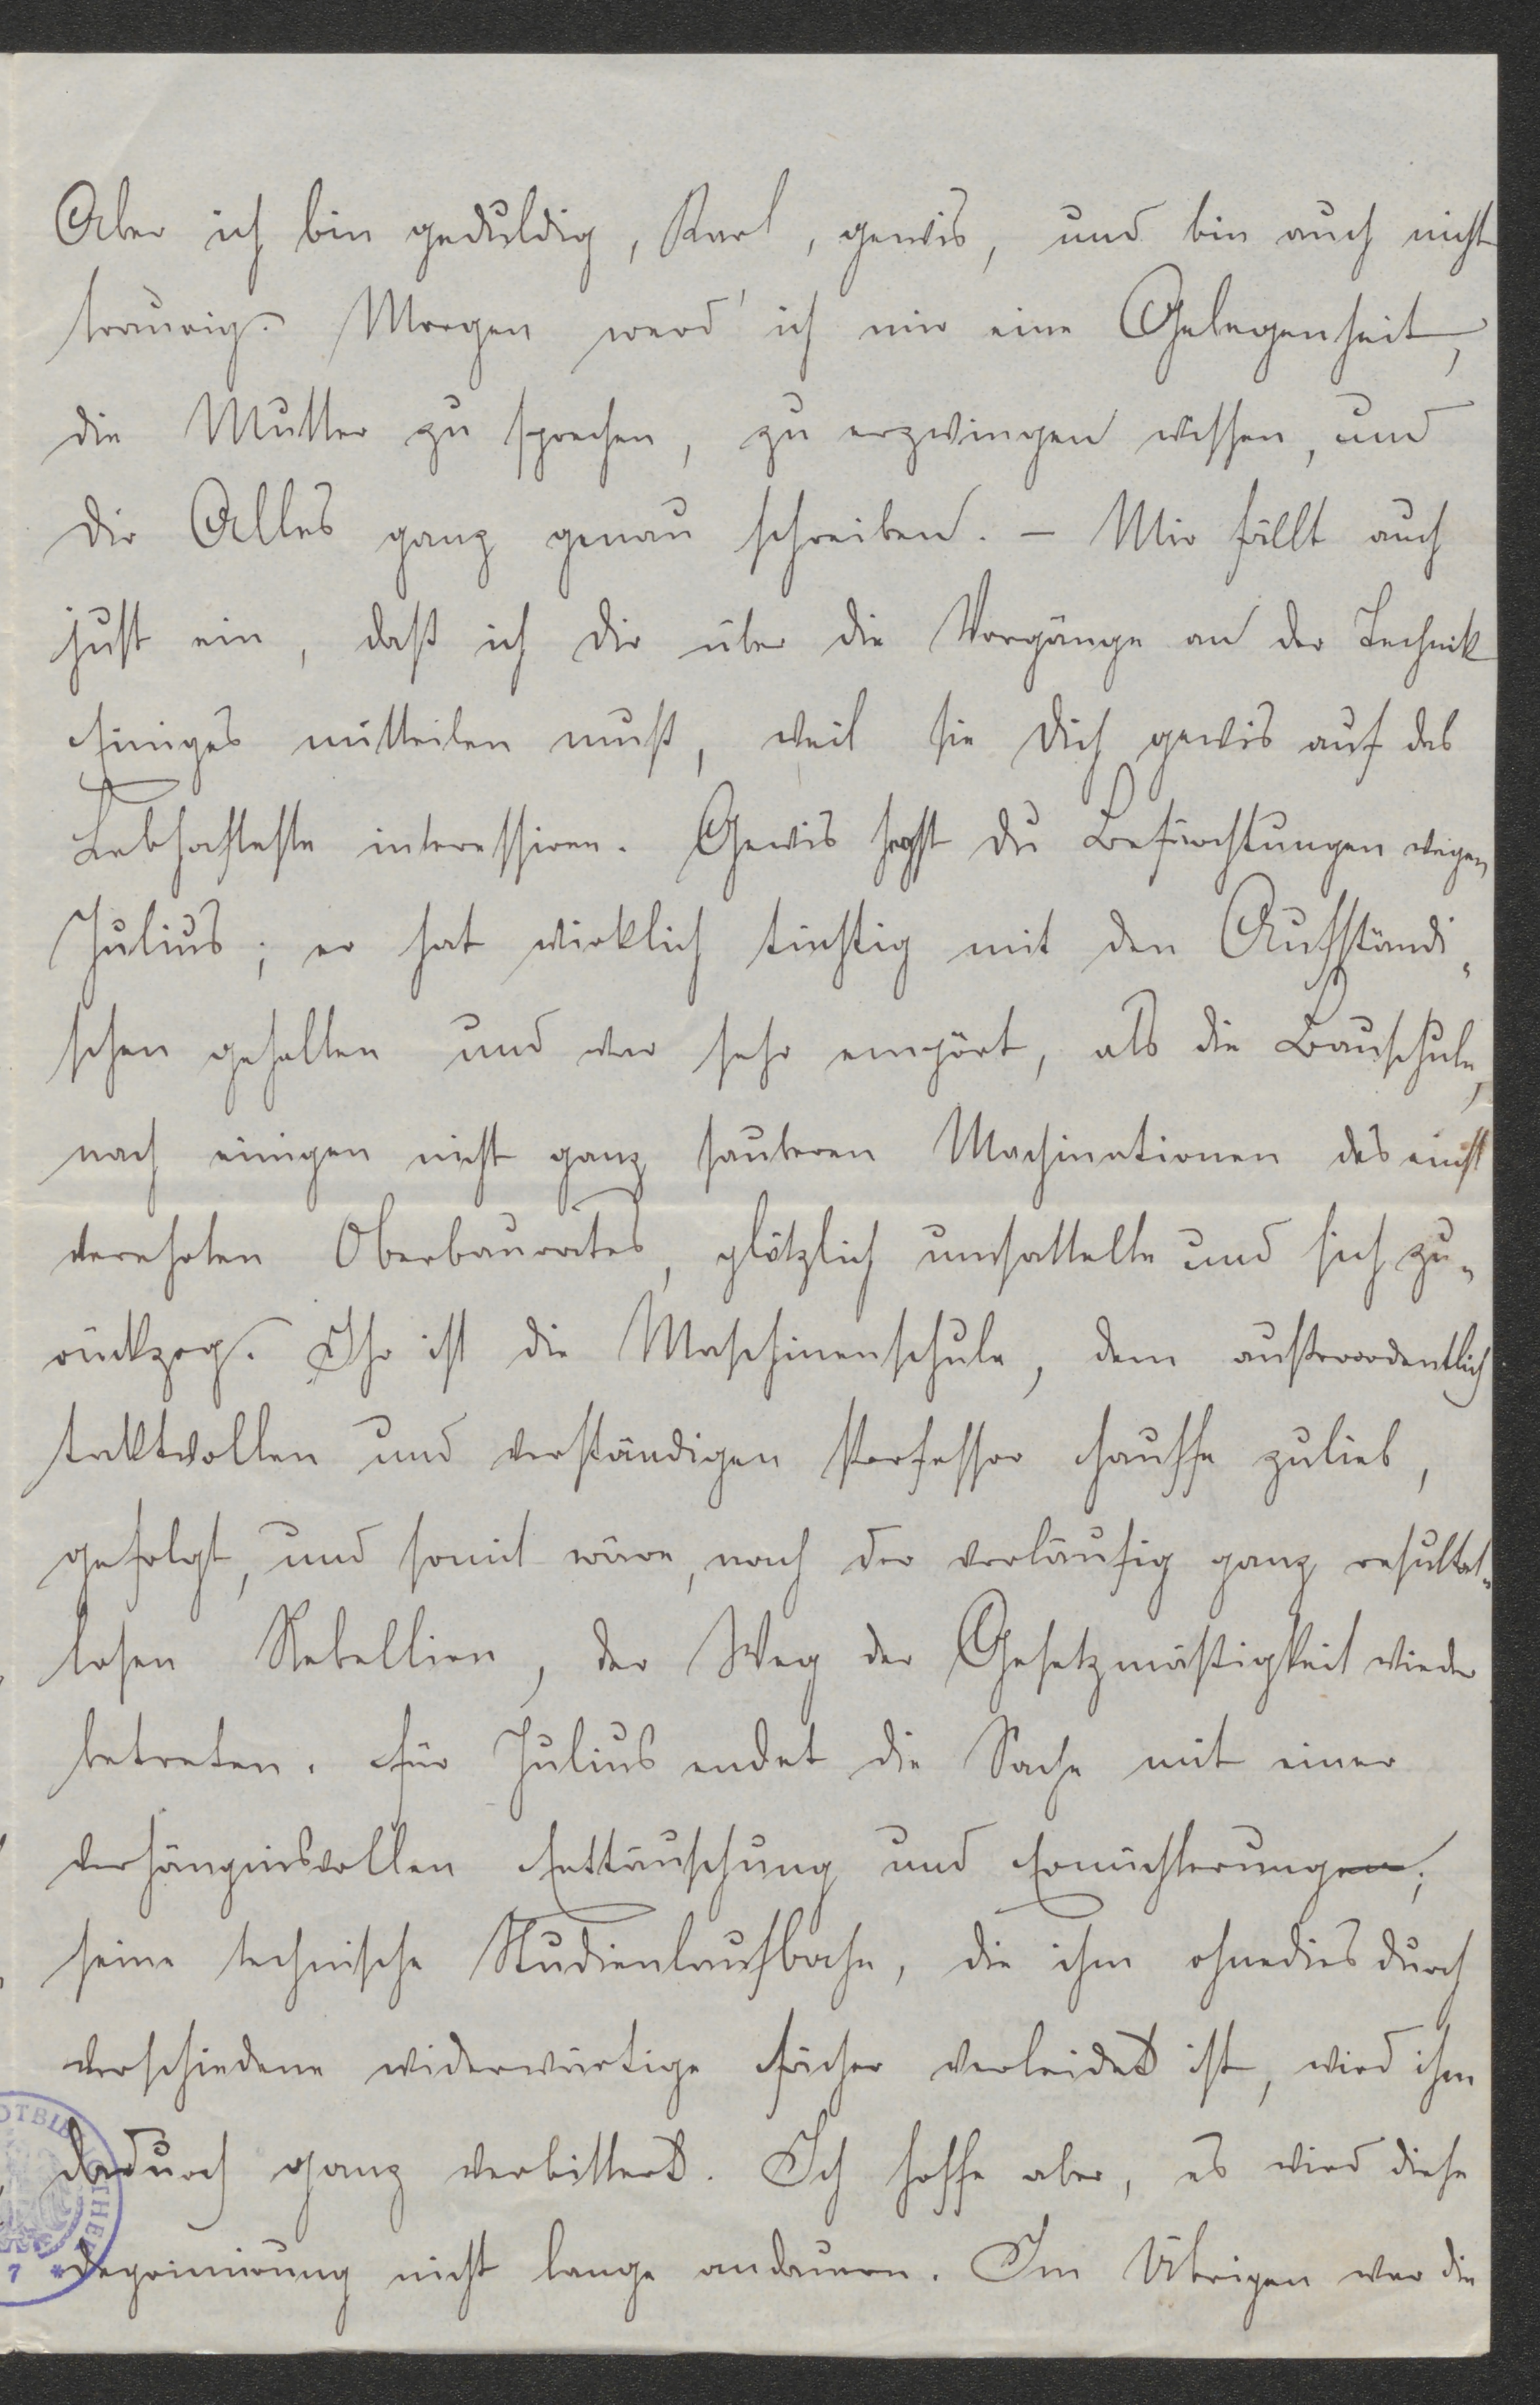 Aber ich bin geduldig, Karl, gewis, und bin auch nicht
traurig. Morgen werd' ich mir eine Gelegenheit,
die Mutter zu sprechen, zu erzwingen wissen, und
Dir Alles ganz genau schreiben. – Mir fällt auch
just ein, daß ich Dir über die Vorgänge an der Technik
Einiges mitteilen muß, weil sie Dich gewis auf das
Lebhafteste interessiren. Gewis hegst Du Befürchtungen wegen
Julius; er hat wirklich tüchtig mit den Aufständi-
schen gehalten und war sehr empört, als die Bauschule,
nach einigen nicht ganz sauberen Machinationen des einst
verehrten Oberbaurates, plötzlich umsattelte und sich zu-
rückzog. Ihr ist die Maschinenschule, dem außerordentlich
taktvollen und verständigen Professor Hauffe zulieb,
gefolgt, und somit wäre, nach der vorläufig ganz resultat-
losen Rebellion, der Weg der Gesetzmäßigkeit wieder
betreten. Für Julius endet die Sache mit einer
verhängnisvollen Enttäuschung und Ernüchterungen;
seine technische Studienlaufbahn, die ihm ohnedies durch
verschiedene widerwärtige Fächer verleidet ist, wird ihm
dadurch ganz verbittert. Ich hoffe aber, es wird diese
Deprimirung nicht lange andauern. Im Übrigen war die
7 *